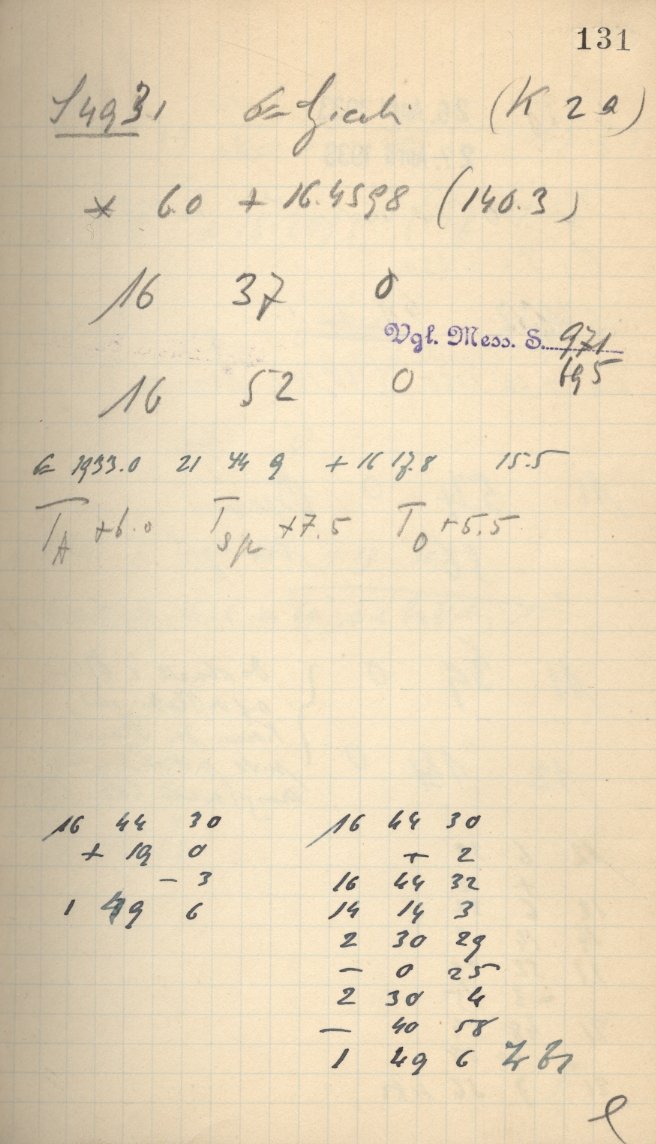 131
S 4931 (K 2a)
* 6.0 + 16.4598 (140.3)
16 37 0
Vgl. Mess. S. 971
16 52 0 195
1933.0 21 44 9 + 16 17.8 15.5
T_A +6.0 T_Sp +7.5 T_O +5.5
16 44 30 16 44 30
+ 19 0 + 2
- 3 16 44 32
1 49 6 14 14 3
2 30 29
- 0 25
2 30 4
- 40 58
1 49 6